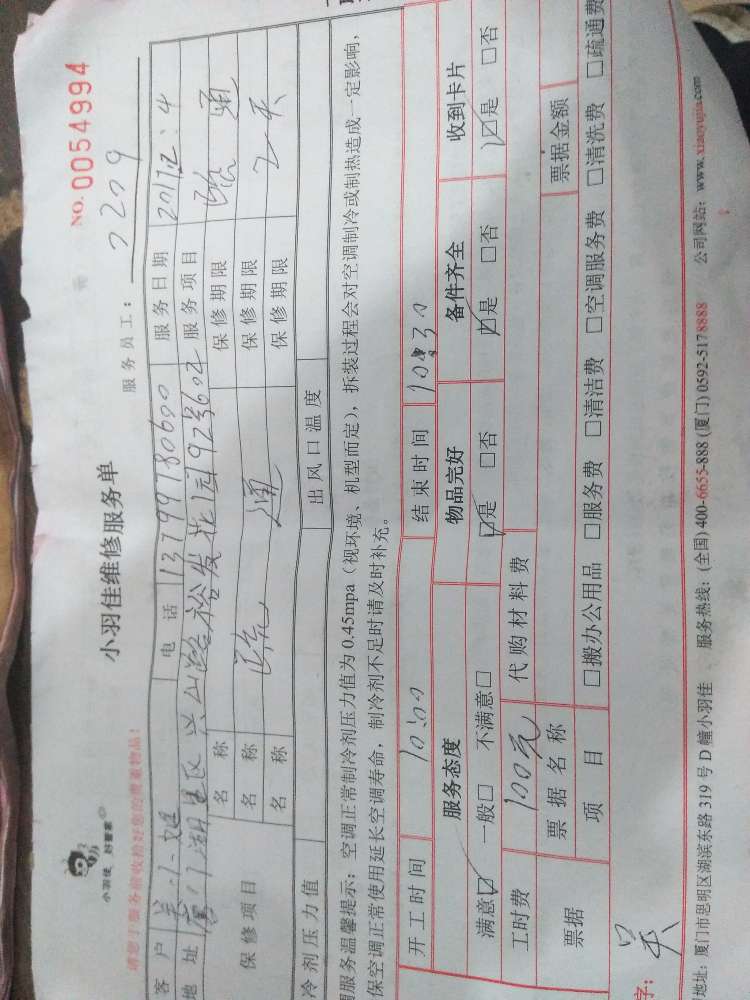 小羽佳 好管家
NO. 0054994
小羽佳维修服务单
请您于服务前收拾好您的贵重物品！
服务员工：
客户 吴小姐 电话 13799780600 服务日期 2017.12.4
地址 湖里区兴山路裕发花园92号602 服务项目 疏通
保修项目 名称 疏通 保修期限 2天
名称 保修期限
名称 保修期限
冷剂压力值 出风口温度
调服务温馨提示：空调正常制冷剂压力值为0.45mpa（视环境、机型而定），拆装过程会对空调制冷或制热造成一定影响，
保空调正常使用延长空调寿命，制冷剂不足时请及时补充。
开工时间 10:00 结束时间 10:30
服务态度 物品完好 备件齐全 收到卡片
满意☑ 一般□ 不满意□ ☑是 □否 ☑是 □否 ☑是 □否
工时费 100元 代购材料费
票据 票据名称 票据金额
项目 □搬办公用品 □服务费 □清洁费 □空调服务费 □清洗费 □疏通费
字： 吴
地址：厦门市思明区湖滨东路319号D幢小羽佳 服务热线：(全国) 400-6655-888 (厦门) 0592-5178888 公司网站：www.xiaoyujia.com